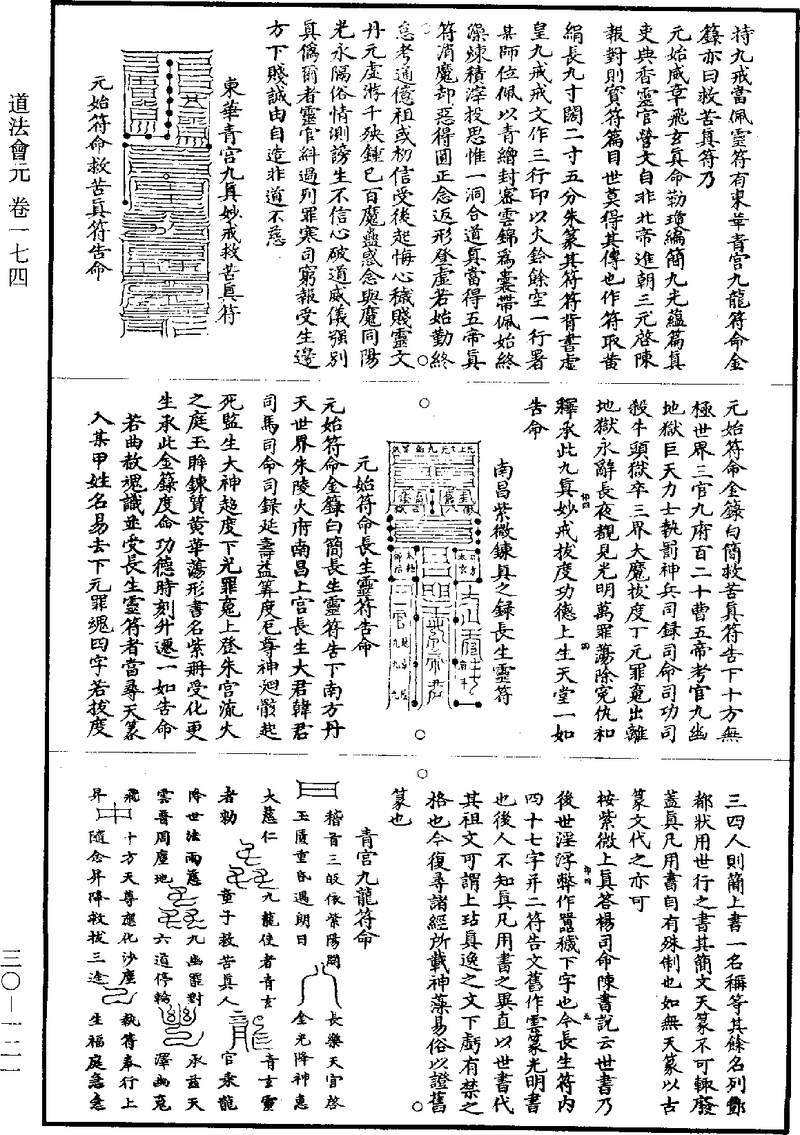 道法會元 卷一七四
三〇—一二一
持九戒當佩靈符有東華青宮九龍符命金
籙亦曰救苦眞符乃
元始威章飛玄眞命勒瓊編簡九光蘊篇眞
吏典香靈官營文自非北帝進朝三元啓陳
報對則寶符篇目世莫得其傳也作符取黃
絹長九寸闊二寸五分朱篆其符符背書虛
皇九戒戒文作三行印以火鈴餘空一行署
某師位佩以青繒封審雲錦爲囊帶佩始終
澡煉積滓投思惟一洞合道眞當得五帝眞
符消魔却惡得圓正念返形登虛若始勤終
怠考適億祖或初信受後起悔心穢賤靈文
丹元虛游千殃鍾已百魔蠱惑念與魔同陽
光永隔俗情測謗生不信心破道威儀強别
眞僞爾者靈官糾過列罪寒司窮報受生邊
方下賤誠由自造非道不慈
東華青宮九眞妙戒救苦眞符
元始符命救苦眞符告命
元始符命金籙白簡救苦眞符告下十方無
極世界三官九府百二十曹五帝考官九幽
地獄巨天力士執罰神兵司錄司命司功司
殺牛頭獄卒三界大魔拔度丁元罪䰟出離
地獄永辭長夜覩見光明萬罪蕩除寃仇和
釋承此九眞妙戒拔度功德上生天堂一如
告命
南昌紫微鍊眞之錄長生靈符
元始符命長生靈符告命
元始符命金籙白簡長生靈符告下南方丹
天世界朱陵火府南昌上官長生大君韓君
司馬司命司錄延壽益筭度厄尊神廻骸起
死監生大神超度下元罪䰟上登朱宮流火
之庭玉眸鍊質黄華蕩形書名紫冊受化更
生承此金籙度命功德時刻升遷一如告命
若曲赦魂識並受長生靈符者當尋天篆
入某甲姓名易去下元罪魂四字若拔度
三四人則簡上書一名稱等其餘名列酆
都狀用世行之書其簡文天篆不可輙廢
蓋眞凡用書自有殊制也如無天篆以古
篆文代之亦可
按紫微上眞答楊司命陳書說云世書乃
後世淫浮弊作囂穢下字也今長生符内
四十七字并二符告文舊作雲篆光明書
也後人不知眞凡用書之異直以世書代
其祖文可謂上玷眞逸之文下虧有禁之
格也今復尋諸經所載神藻易俗以證舊
篆也
青宮九龍符命
稽首三皈依紫陽闕 長樂天宮啓
玉屬重昏遇朗日 金光降神惠
大慈仁 九龍使者青玄 青玄靈
者勑 童子救苦眞人 官乘龍
降世法雨慈 九幽罪對 承茲天
雲普周塵地 六道停輪 澤幽䰟
飛 十方天尊應化沙塵 執符奉行上
昇 隨念昇降救拔三途 生福庭急急